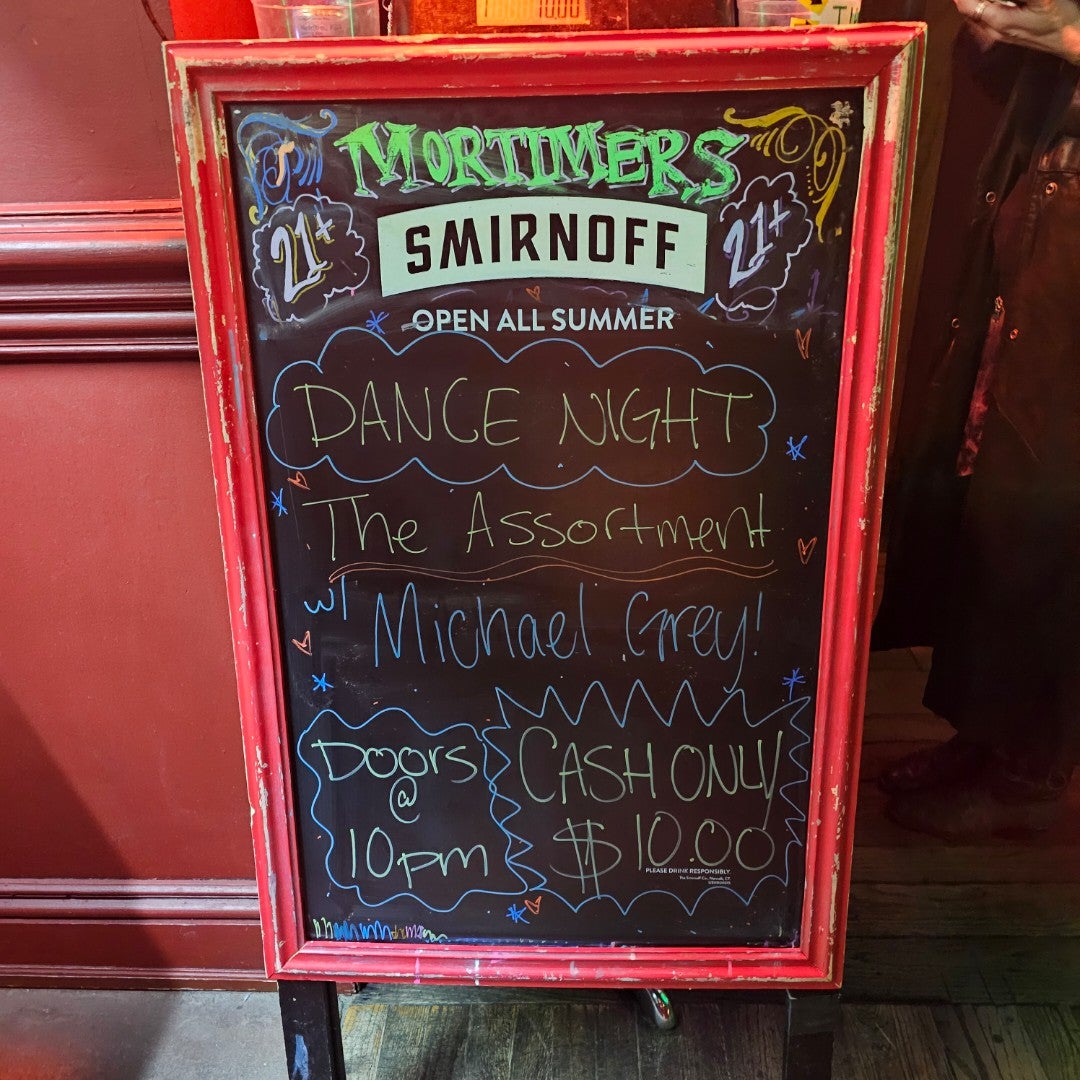 MORTIMERS
21+
SMIRNOFF
21+
OPEN ALL SUMMER
DANCE NIGHT
The Assortment
w/ Michael Grey!
Doors
@
10pm
CASH ONLY
$10.00
PLEASE DRINK RESPONSIBLY.